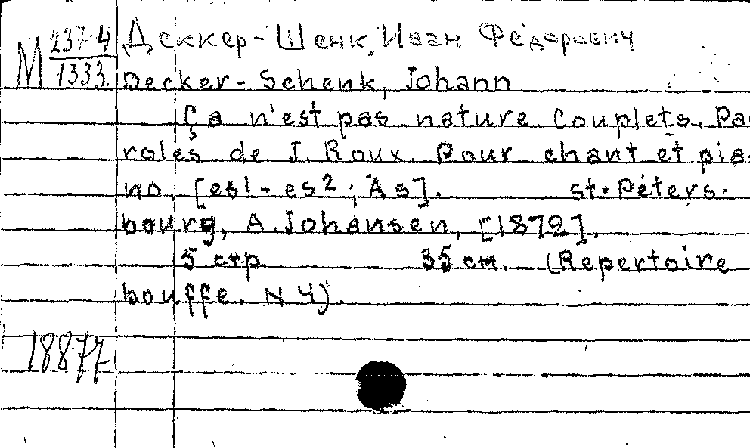 М 237-4
1333
Деккер-Шенк, Иван Фёдорович
Decker-Schenk, Johann
Ça n'est pas nature. Couplets. Pa-
roles de J. Roux. Pour chant et pia-
no. [es1-es2; As]. St.-Péters-
bourg, A. Johansen, [1872].
5 стр 35 см. (Repertoire
bouffe. N 4).
18877